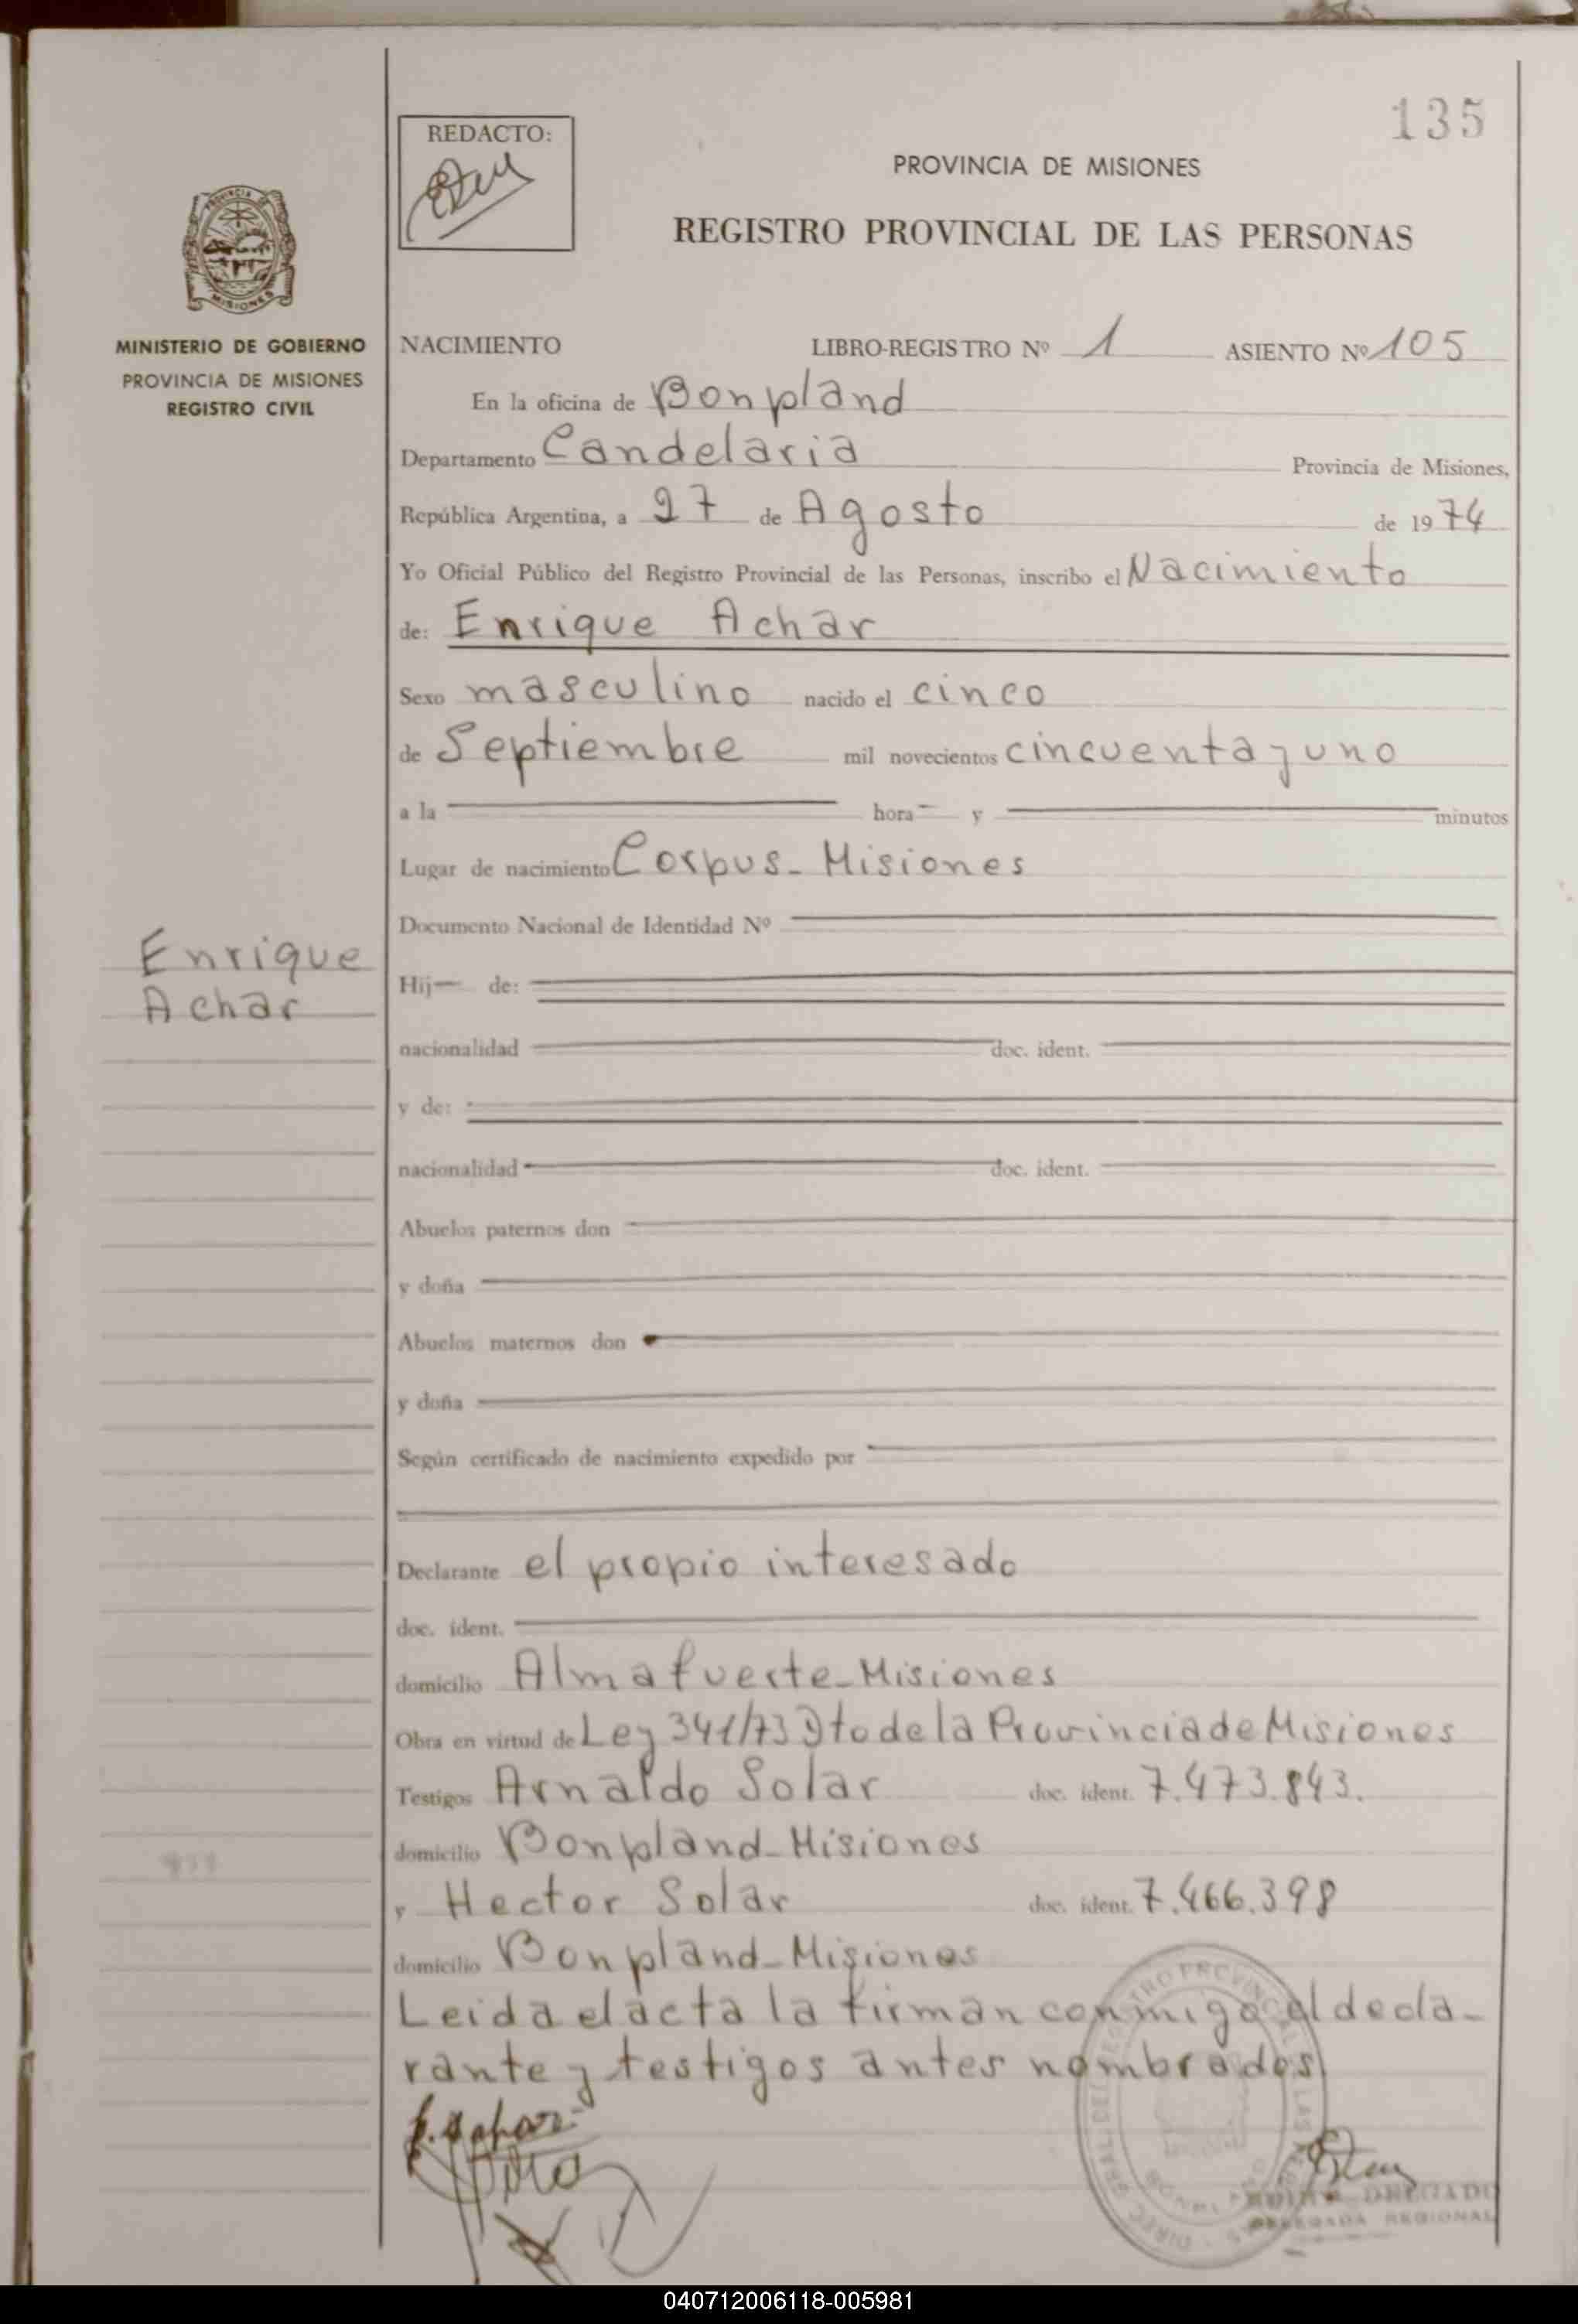 135
REDACTO:
PROVINCIA DE MISIONES
REGISTRO PROVINCIAL DE LAS PERSONAS
PROVINCIA DE
MISIONES
MINISTERIO DE GOBIERNO
PROVINCIA DE MISIONES
REGISTRO CIVIL
NACIMIENTO LIBRO-REGISTRO Nº 1 ASIENTO Nº 105
En la oficina de Bonpland
Departamento Candelaria Provincia de Misiones,
República Argentina, a 27 de Agosto de 1974
Yo Oficial Público del Registro Provincial de las Personas, inscribo el Nacimiento
de: Enrique Achar
Sexo masculino nacido el cinco
de Septiembre mil novecientos cincuenta y uno
a la hora y minutos
Lugar de nacimiento Corpus - Misiones
Documento Nacional de Identidad Nº
Enrique
Achar
Hij de:
nacionalidad doc. ident.
y de:
nacionalidad doc. ident.
Abuelos paternos don
y doña
Abuelos maternos don
y doña
Según certificado de nacimiento expedido por
Declarante el propio interesado
doc. ident.
domicilio Almafuerte - Misiones
Obra en virtud de Ley 341/73 Dto de la Provincia de Misiones
Testigos Arnaldo Solar doc. ident. 7.473.843.
domicilio Bonpland - Misiones
y Hector Solar doc. ident. 7.466.398
domicilio Bonpland - Misiones
Leida el acta la firman conmigo el decla-
rante y testigos antes nombrados
E. Achar
DELEGADA REGIONAL
040712006118-005981